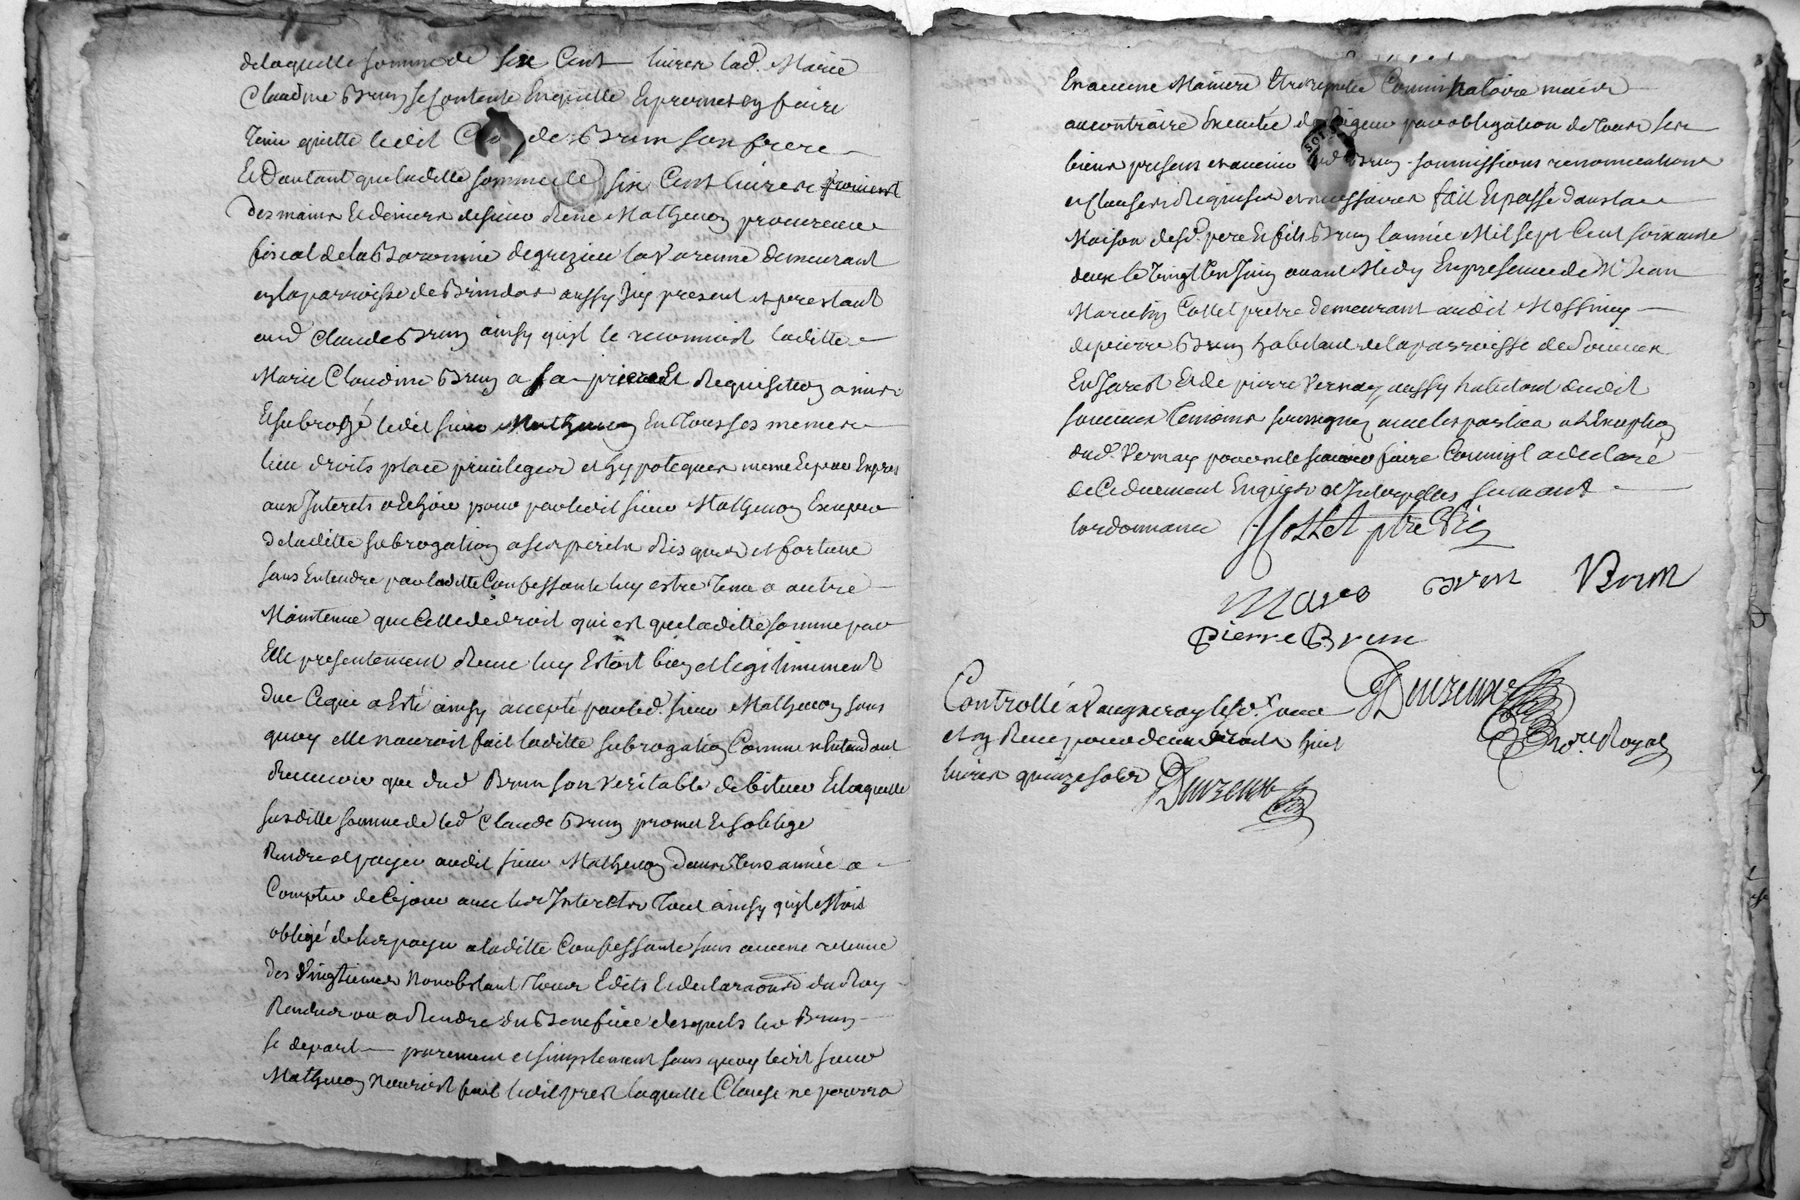 delaquelle somme de six Cent livres lad. Marie
Claudine Brun se contente En quitte Et promet En faire
tenir quitte ledit Claude Brun son frere
Et Dautant que laditte somme de six Cent livres provient
des mains Et deniers de sieur Rene Mathevon procureur
fiscal de la Baronnie de grezieu la Varenne demeurant
en la parroisse de Brindas aussy Icy present et prestant
aud Claude Brun ainsy quil le reconnoit laditte
Marie Claudine Brun a sa priere Et Requisition a mis
Et subrogé ledit sieur Mathevon En tous ses memes
lieu droits place privileges et hypoteques meme Et pour Expres
aux Interets a Echoir pour par ledit sieur Mathevon Exiper
de laditte subrogation a ses perils Risques et fortune
sans Entendre par laditte Confessante luy estre tenu a autre
Maintenue que Celle de droit qui est que laditte somme par
Elle presentement Reçue luy Estoit bien et legitimement
due Ce qui a Esté ainsy accepté par led. sieur Mathevon sans
quoy elle nauroit fait laditte subrogation Comme nEntendant
Recevoir que dud Brun son veritable debiteur Et laquelle
susditte somme de led Claude Brun promet Et soblige
Rendre et payer audit sieur Mathevon dans trois année a
Compter de Ce jour avec les Interets Tout ainsy quil Estoit
obligé de les payer a laditte Confessante sans aucune retenue
des Vingtiemes Nonobstant tous Edits Et declarations du Roy
Rendus ou a Rendre du Benefice desquels led Brun
se depart purement et simplement sans quoy ledit sieur
Mathevon nauroit fait ledit prest laquelle Clause ne pourra
En aucune Maniere Etre reputée Comminatoire mais
au contraire Executée de Rigueur par obligation de tous ses
biens presens et avenir dud Brun soumissions renonciations
et Clauses Requises et necessaires fait Et passé dans la
Maison desd. pere Et fils Brun lannée Mil sept Cent soixante
deux le Vingt Juin avant Midy En presence de Mr Jean
Collet pretre demeurant audit Messimy
de pierre Brun habitant de la parroisse de Soucieu
En Jarest Et de pierre Vernay aussy habitant dudit
soucieu temoins soussignés avec les parties a lException
dud. Vernay pour ne le scavoir faire Comme il a declaré
de Ce duement Enquis et Interpellés suivant
lordonnance Collet ptre Vic
Marc Brun Brun
Pierre Brun
Controllé a Vaugneray led. jour
et an Reçu pour deux droits huit
livres quinze sols
Nore Royal